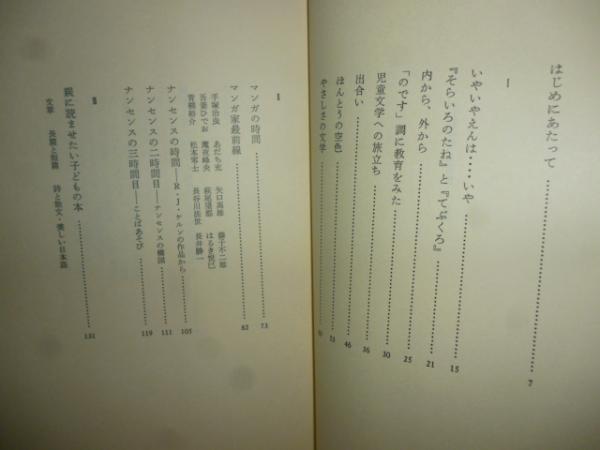 はじめにあたって……7
I
いやいやえんは・・・・いや……15
『そらいろのたね』と『てぶくろ』……21
内から、外から……25
「のです」調に教育をみた……30
児童文学への旅立ち……36
出合い……46
ほんとうの空色……53
やさしさの文学
II
マンガの時間……73
マンガ家最前線……82
手塚治虫 あだち充 矢口高雄 藤子不二雄
吾妻ひでお 魔夜峰央 萩尾望都 はるき悦巳
青柳裕介 松本零士 長谷川法世 長井勝一
ナンセンスの時間――R・J・ケルンの作品から……105
ナンセンスの二時間目――ナンセンスの構図……111
ナンセンスの三時間目――ことばあそび……119
III
親に読ませたい子どもの本……131
文章 長篇と短篇 詩と散文・美しい日本語